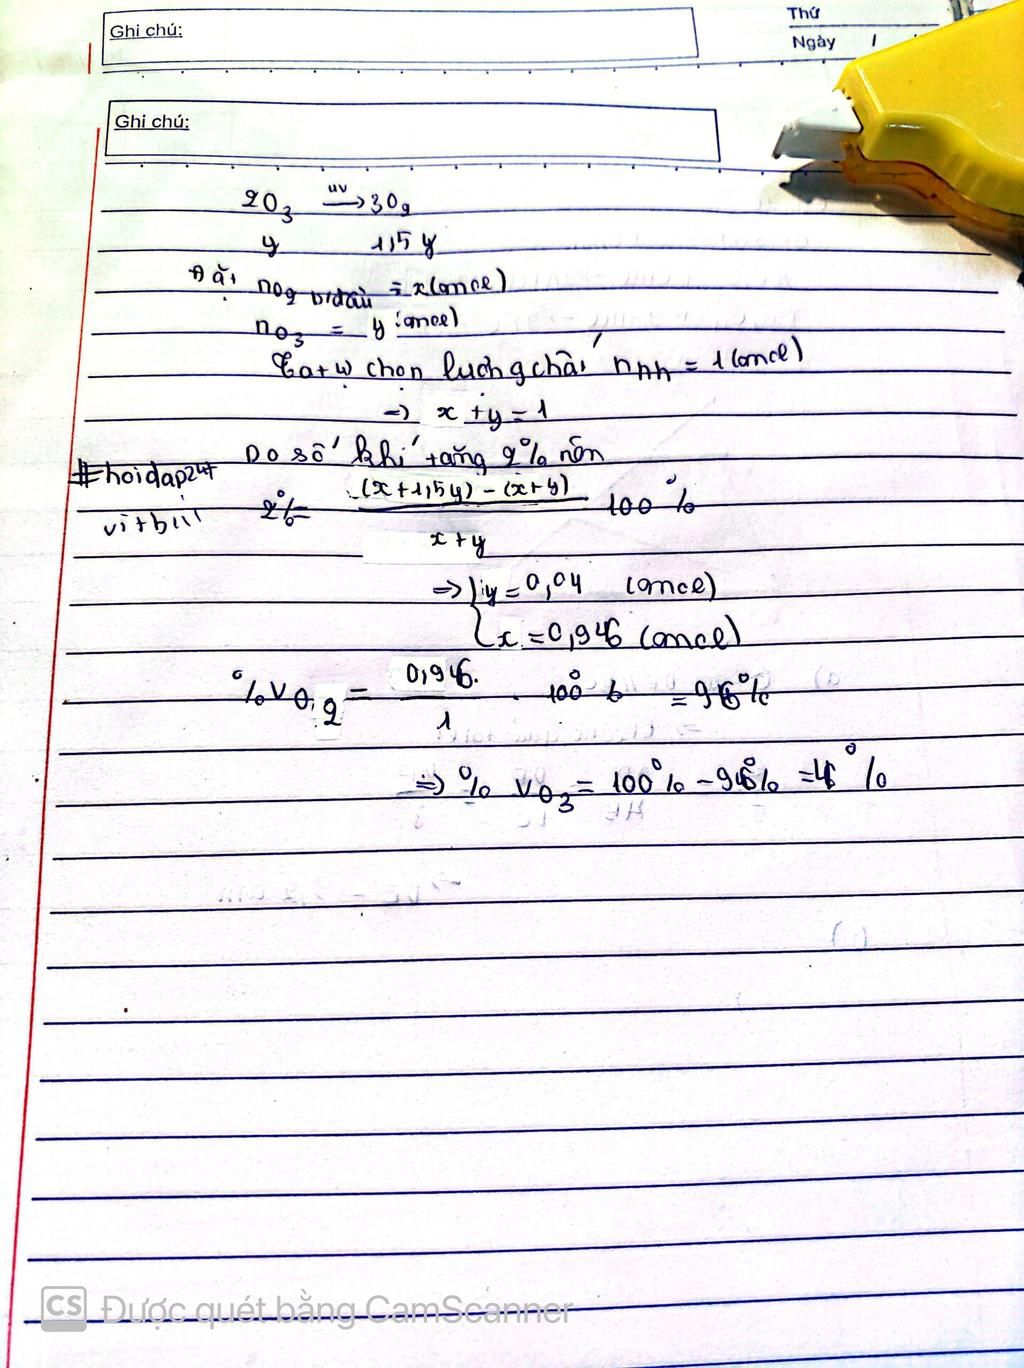 Ghi chú:
Thứ
Ngày /
Ghi chú:
2O3 uv→ 3O2
y 1,5 y
Đặt nO2 b/đầu = x (mol)
nO3 = y (mol)
Ta tự chọn lượng chất nhh = 1 (mol)
=> x + y = 1
Do số khí tăng 2% nên
#hoidap247
2% = (x + 1,5y) - (x + y) 100%
x + y
=> { y = 0,04 (mol)
x = 0,96 (mol)
%VO2 = 0,96 . 100% = 96%
1
=> % VO3 = 100% - 96% = 4%
CS Được quét bằng CamScanner